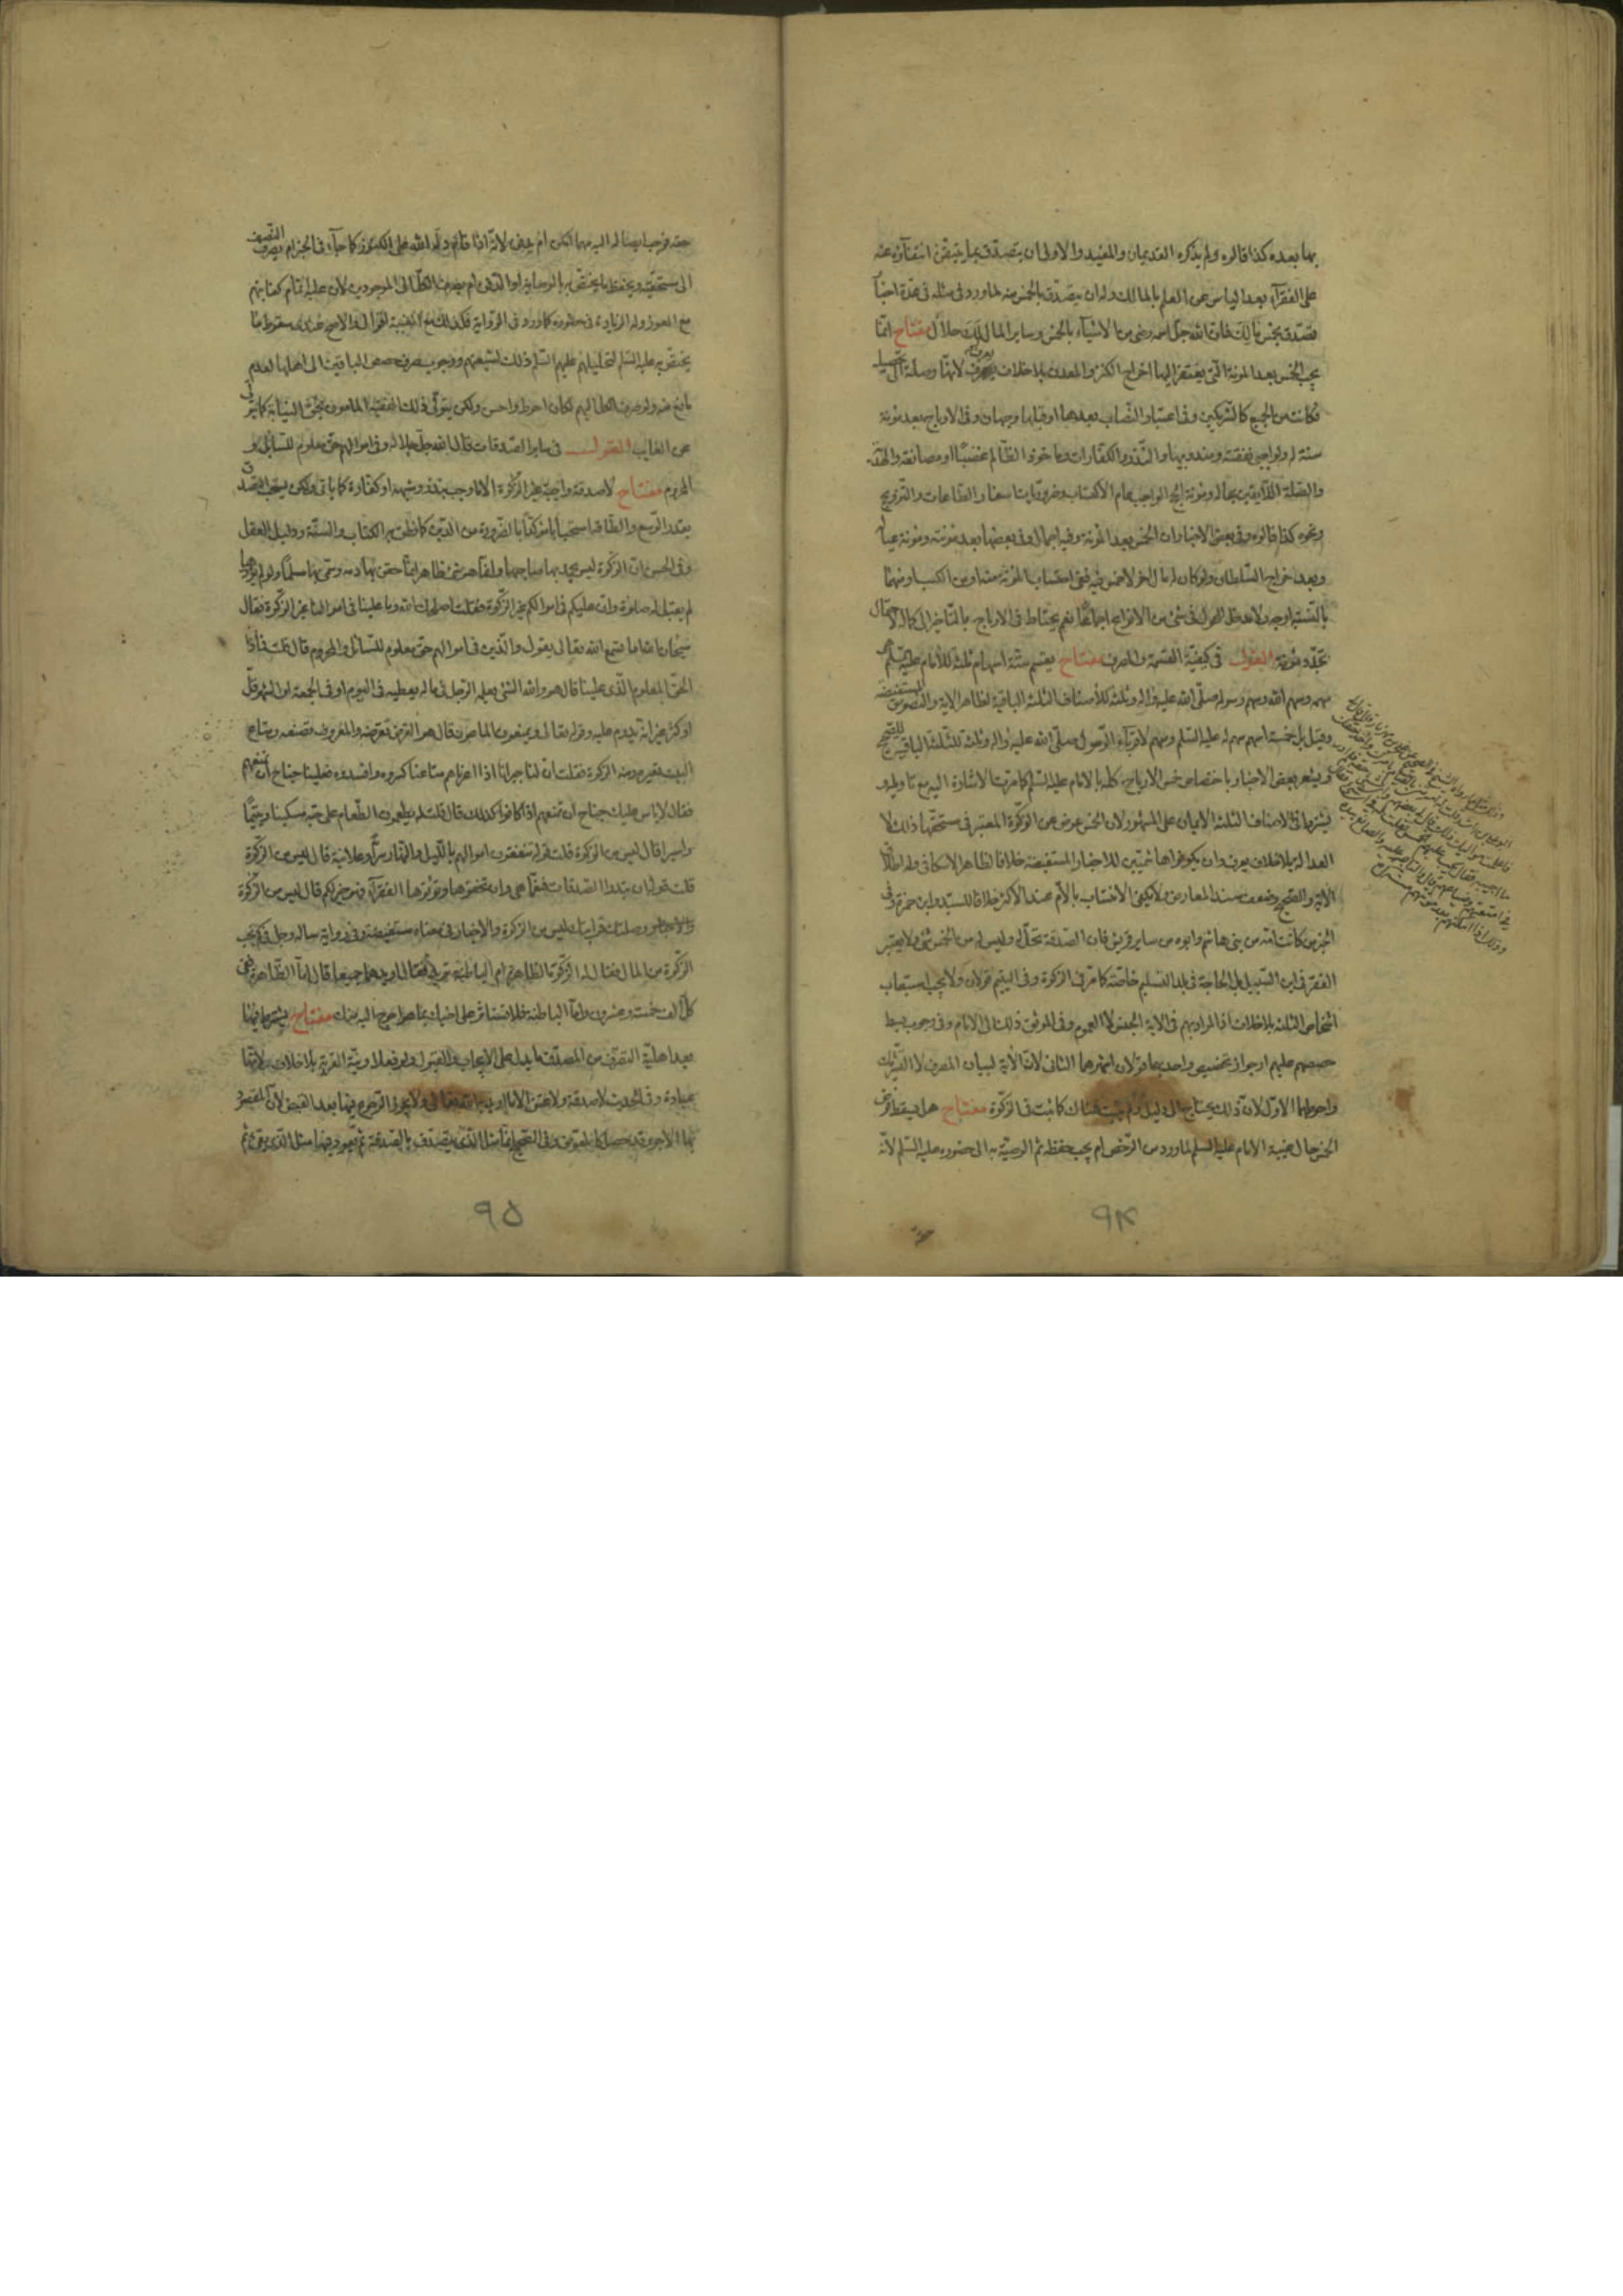 بها بعده كذا قالوه ولم يذكره القديمان والمفيد والاولى ان يتصدق بما يتيقن انتفاؤه عنه
على الفقراء بعد الياس عن العلم بالمالك وله ان يتصدق بالخمس منه لما ورد فى مثله فى عدة اخبار
تصدق بخمس مالك فان الله جل اسمه رضى من الاشياء بالخمس وساير المال لك حلال مفتاح انما
يجب الخمس بعد المونة التى يفتقر اليها اخراج الكنز والمعدن بلا خلاف يعرف لانها وصلة الى تحصيله
فكانت من الجميع كالشريكين وفى اعتبار النصاب بعدها او قبلها وجهان وفى الارباح بعد مونة
سنة له ولواجبى نفقته ومندوبيها والنذر والكفارات وما خوذ الظالم غصبا او مصانعة والهدية
والصلة اللايقين بحاله ومونة الحج الواجب عام الاكتساب وضروريات اسفار الطاعات والتزويج
ونحوه كذا قالوه وفى بعض الاخبار ان الخمس بعد المونة وفيه اجمال وفى بعضها بعد مونته ومونة عياله
وبعد خراج السلطان ولو كان له مال اخر لا خمس فيه ففى احتساب المونة منه او من الكسب او منهما
بالنسبة اوجه ولا يعتبر الحول فى شىء من الانواع اجماعا نعم يحتاط فى الارباح بالتاخير الى كماله لاحتمال
تجدد مونة القول فى كيفية القسمة والمصرف مفتاح يقسم ستة اسهم ثلثة للامام عليه السلم
سهمه وسهم الله وسهم رسوله صلى الله عليه واله وثلثة للاصناف الثلثة الباقية لظاهر الاية والنصوص المستفيضة
وقيل بل خمسة اسهم سهم له عليه السلم وسهم لاقرباء الرسول صلى الله عليه واله وثلثة للثلثة الباقين للصحيح
ويشعر بعض الاخبار باختصاص خمس الارباح كله بالامام عليه السلم كما مرت الاشارة اليه مع تاويله و
يشترط فى الاصناف الثلثة الايمان على المشهور لان الخمس عوض عن الزكوة المعتبر فى مستحقها ذلك لا
العدالة بلا خلاف يعرف وان يكونوا هاشميين للاخبار المستفيضة خلافا لظاهر الاسكافى وله اطلاق
الاية والصحيح وضعف سند المعارض ولا يكفى الانتساب بالام عند الاكثر خلافا للسيد وابن حمزة وفى
الخبر من كانت امه من بنى هاشم وابوه من ساير قريش فان الصدقة تحل له وليس له من الخمس شىء ولا يعتبر
الفقر فى ابن السبيل بل الحاجة فى بلد التسليم خاصة كما مر فى الزكوة وفى اليتيم قولان ولا يجب استيعاب
اشخاص الثلثة بلا خلاف اذ المراد بهم فى الاية الجنس لا العموم وفى الموثق ذلك الى الامام وفى وجوب بسط
حصصهم عليهم او جواز تخصيص واحد بها قولان اشهرهما الثانى لان الاية لبيان المصرف لا التشريك
واحوطهما الاول لان ذلك يحتاج الى دليل ولم يثبت هناك كما ثبت فى الزكوة مفتاح هل يسقط فرض
الخمس حال غيبة الامام عليه السلم لما ورد من الرخص ام يجب حفظه ثم الوصية به الى حضوره عليه السلم لانه
٩٤
حقه فوجب ايصاله اليه مهما امكن ام يدفن لانه اذا قام دله الله على الكنوز كما جاء فى الخبر ام يصرف النصف
الى مستحقيه ويحفظ ما يختص به بالوصاية او الدفن ام يصرف الكل الى الموجودين لان عليه اتمام كفايتهم
مع العوز وله الزيادة فى حضوره كما ورد فى الرواية فكذلك مع الغيبة اقوال والاصح عندى سقوط ما
يختص به عليه السلم لتحليلهم عليهم السلم ذلك لشيعتهم ووجوب صرف حصص الباقين الى اهلها لعدم
مانع عنه ولو صرف الكل اليهم لكان احوط واحسن ولكن يتولى ذلك الفقيه المامون بحق النيابة كما يتولى
عن الغايب القول فى ساير الصدقات قال الله جل جلاله وفى اموالهم حق معلوم للسائل و
المحروم مفتاح لا صدقة واجبة غير الزكوة الا ما وجب بنذر وشبهه او كفارة كما ياتى ولكن يستحب التصدق
بقدر الوسع والطاقة استحبابا مؤكدا بالضرورة من الدين كما نطق به الكتاب والسنة ودليل العقل
وفى الحسن ان الزكوة ليس يحمد بها صاحبها وانما هو شىء ظاهر انما حقن بها دمه وسمى بها مسلما ولو لم يؤدها
لم يقبل له صلوة وان عليكم فى اموالكم غير الزكوة فقلت اصلحك الله وما علينا فى اموالنا غير الزكوة فقال
سبحان الله اما تسمع الله تعالى يقول والذين فى اموالهم حق معلوم للسائل والمحروم قال قلت فماذا
الحق المعلوم الذى علينا قال هو والله الشىء يعلمه الرجل فى ماله يعطيه فى اليوم او فى الجمعة او الشهر قل
او كثر غير انه يدوم عليه وقوله تعالى ويمنعون الماعون قال هو القرض تقرضه والمعروف تصنعه ومتاع
البيت تعيره ومنه الزكوة فقلت ان لنا جيرانا اذا اعرناهم متاعنا كسروه وافسدوه فعلينا جناح ان نمنعهم
فقال لا ليس عليك جناح ان تمنعهم اذا كانوا كذلك قال قلت له ويطعمون الطعام على حبه مسكينا ويتيما
واسيرا قال ليس من الزكوة قلت قوله ينفقون اموالهم بالليل والنهار سرا وعلانية قال ليس من الزكوة
قلت قوله ان تبدوا الصدقات فنعما هى وان تخفوها وتؤتوها الفقراء فهو خير لكم قال ليس من الزكوة
وصلتك قرابتك ليس من الزكوة والاخبار فى معناه مستفيضة وفى رواية ساله رجل فى كم تجب
الزكوة من المال فقال له الزكوة الظاهرة ام الباطنة تريد فقال اريدهما جميعا قال اما الظاهرة ففى
كل الف خمسة وعشرون واما الباطنة فلا تستاثر على اخيك بما هو احوج اليه منك مفتاح يشترط فيها
بعد اهلية التصرف من المتصدق ما يدل على الايجاب والقبول ولو فعلا ونية القربة بلا خلاف لانها
عبادة وفى الحديث لا صدقة ولا عتق الا ما اريد به الله تعالى ولا يجوز الرجوع فيها بعد القبض لان المقصود
بها الاجر وقد حصل كالمعوض وفى الصحيح انما مثل الذى يتصدق بالصدقة ثم يعود فيها مثل الذى يقئ ثم
٩٥